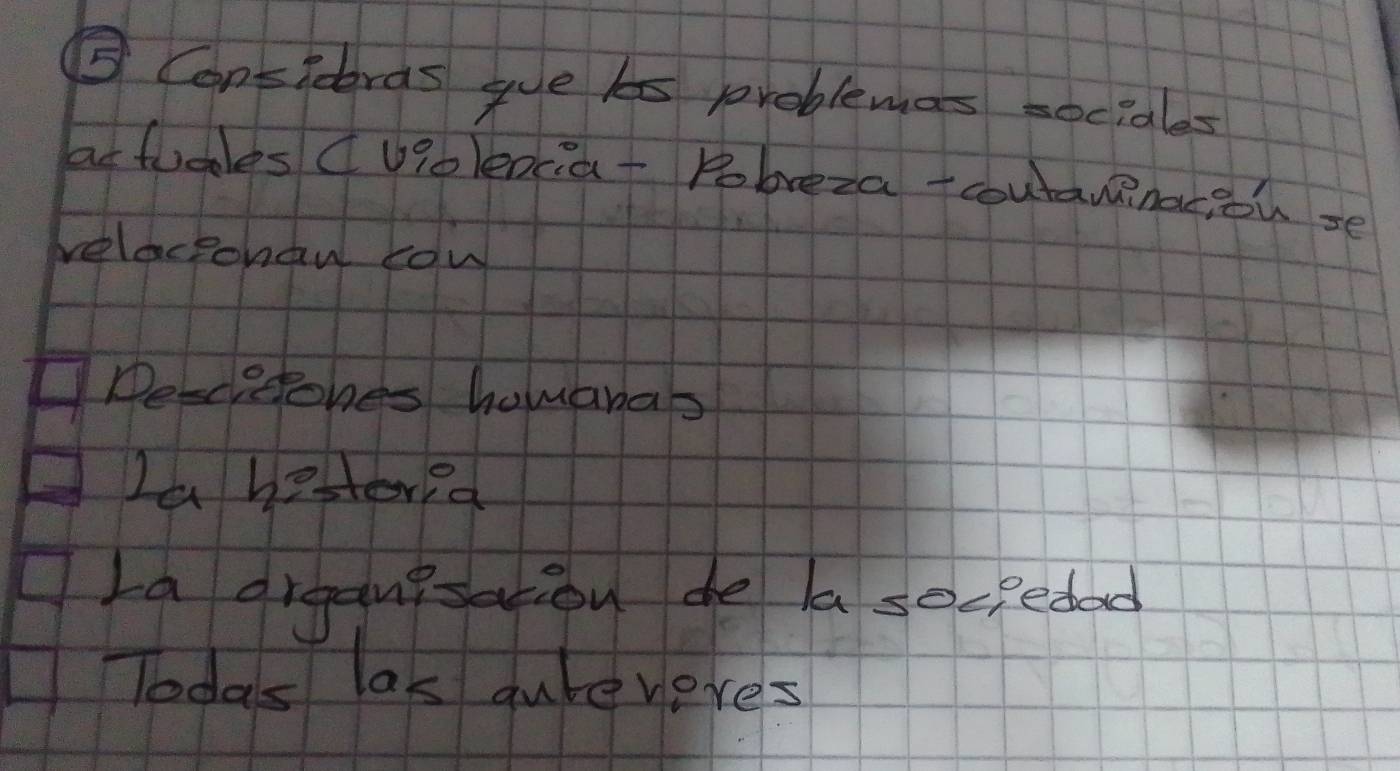 5 Consideras que los problemas sociales
actuales (violencia - Pobreza - contaminación se
relacionan con
Descisiones humanas
La historia
La organisación de la sociedad
Todas las anteriores